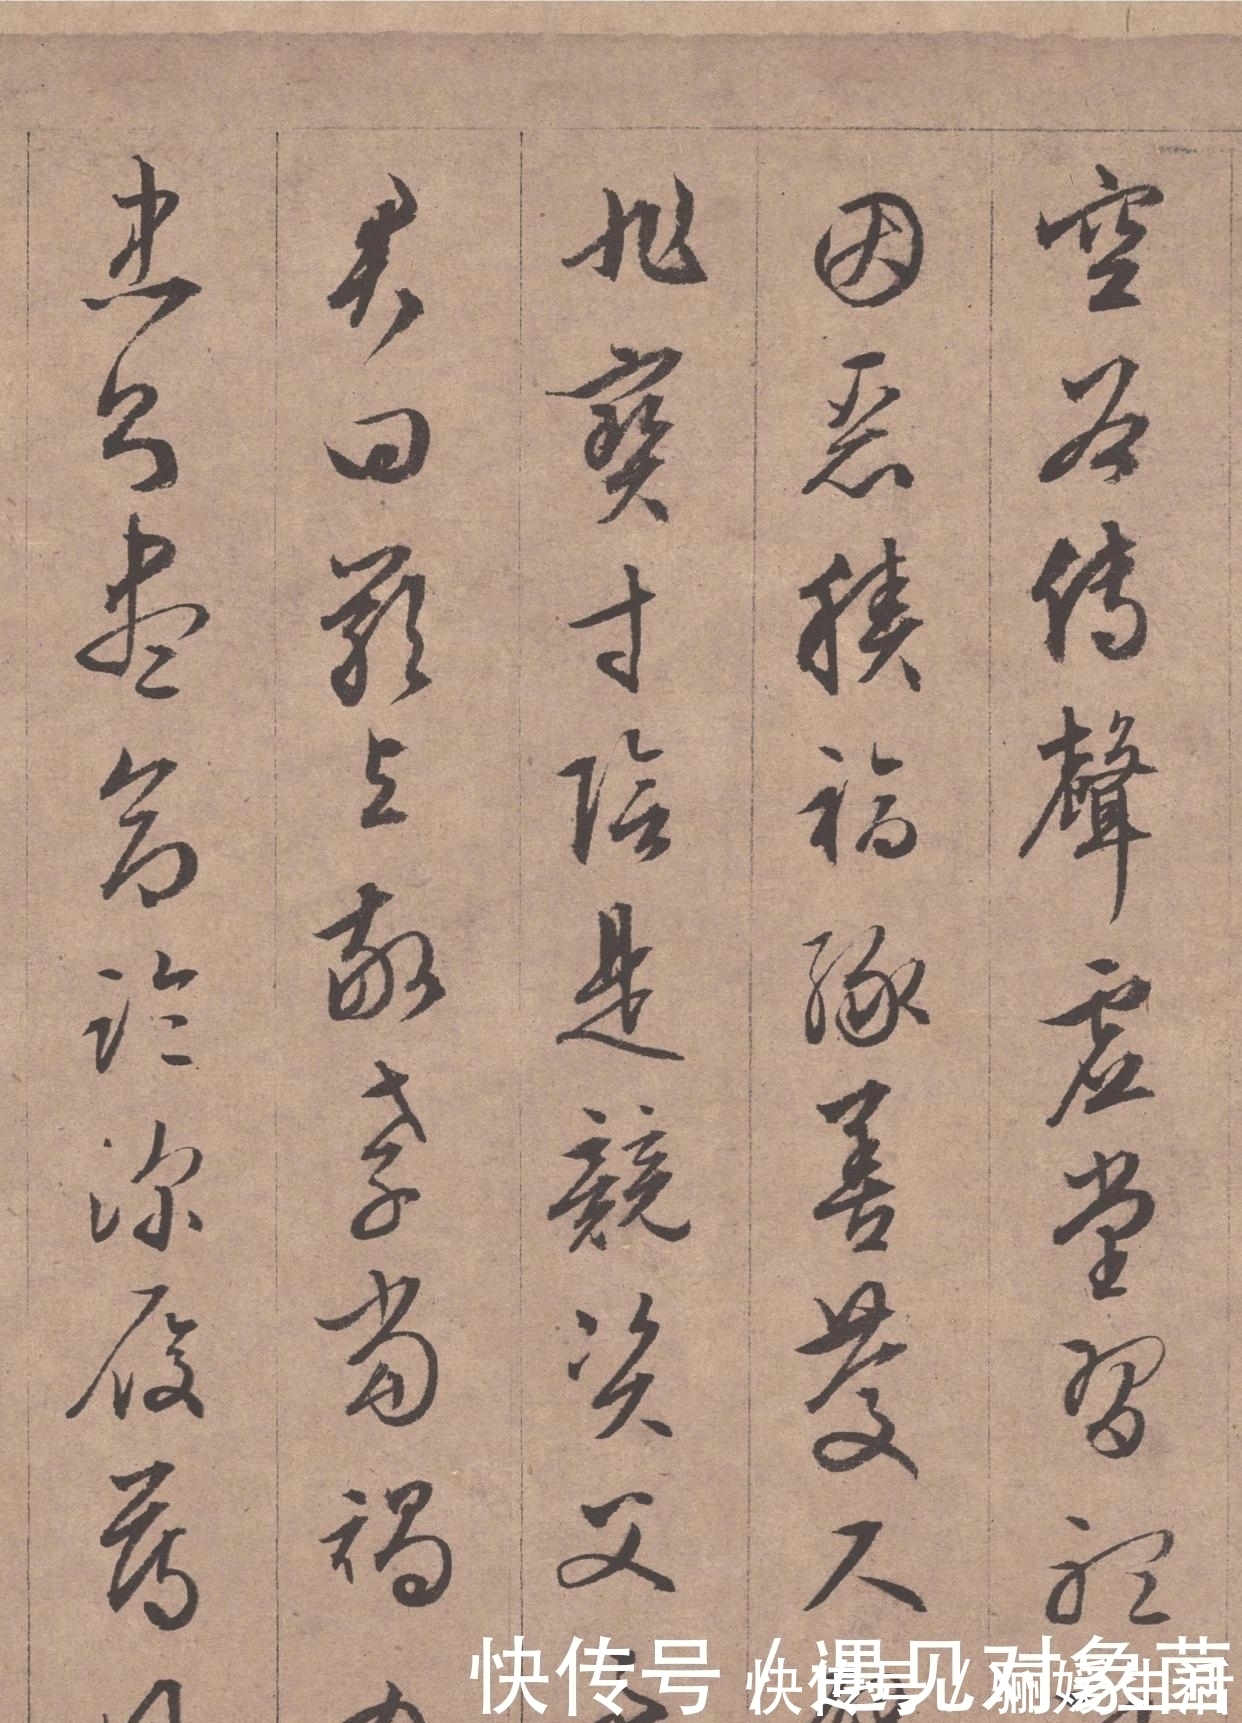 空谷傳聲虛堂習聽
因惡積福緣善慶尺
非寶寸陰是競資父
君曰嚴與敬孝當竭
忠則盡命臨深履薄
快传号 / 遇见对象菌
快传号 /